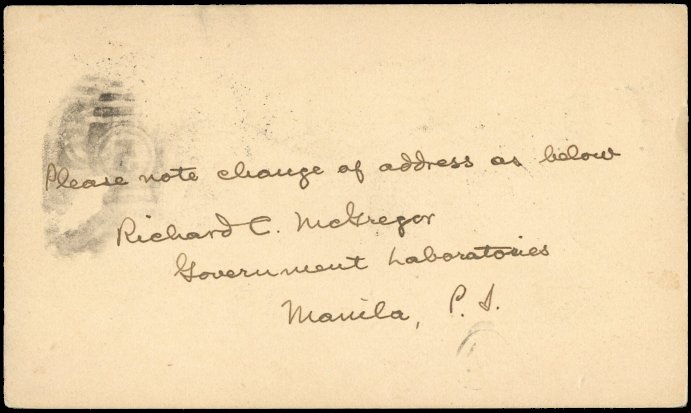 Please note change of address as below
Richard C. McGregor
Government Laboratories
Manila, P. I.